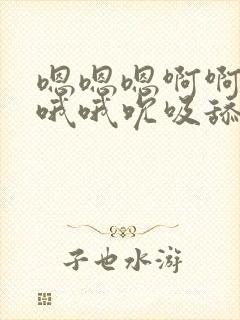 嗯嗯嗯啊啊
哦哦吮吸舔
子也水游